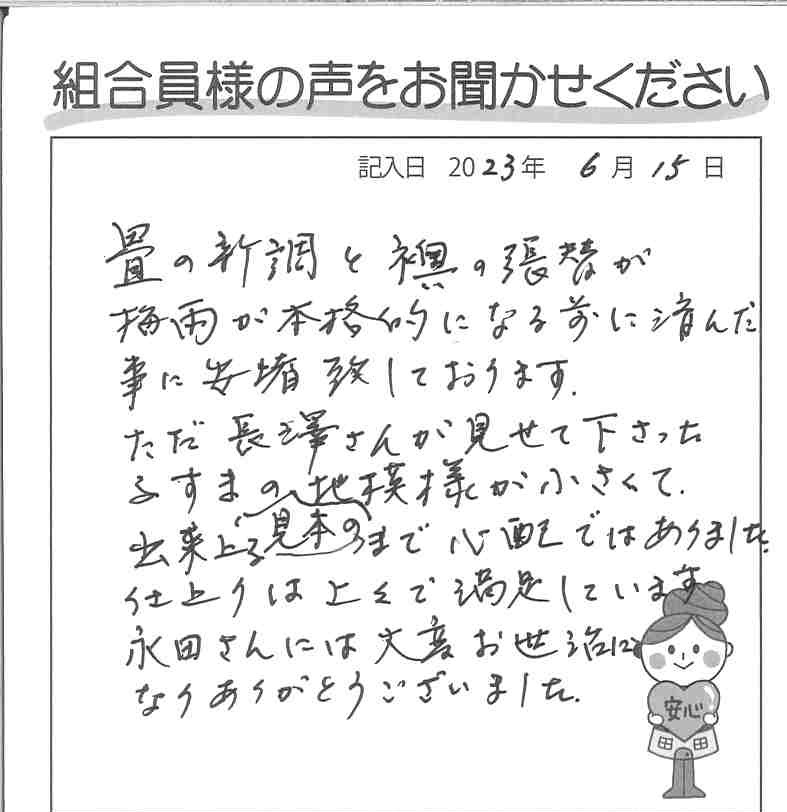 組合員様の声をお聞かせください
記入日 2023年 6月 15日
畳の新調と襖の張替が
梅雨が本格的になる前に済んだ
事に安堵致しております.
ただ長澤さんが見せて下さった
見本の
ふすまの地模様が小さくて.
出来上るまで心配ではありました
仕上りは上々で満足しています
永田さんには大変お世話に
なりありがとうございました.
安心